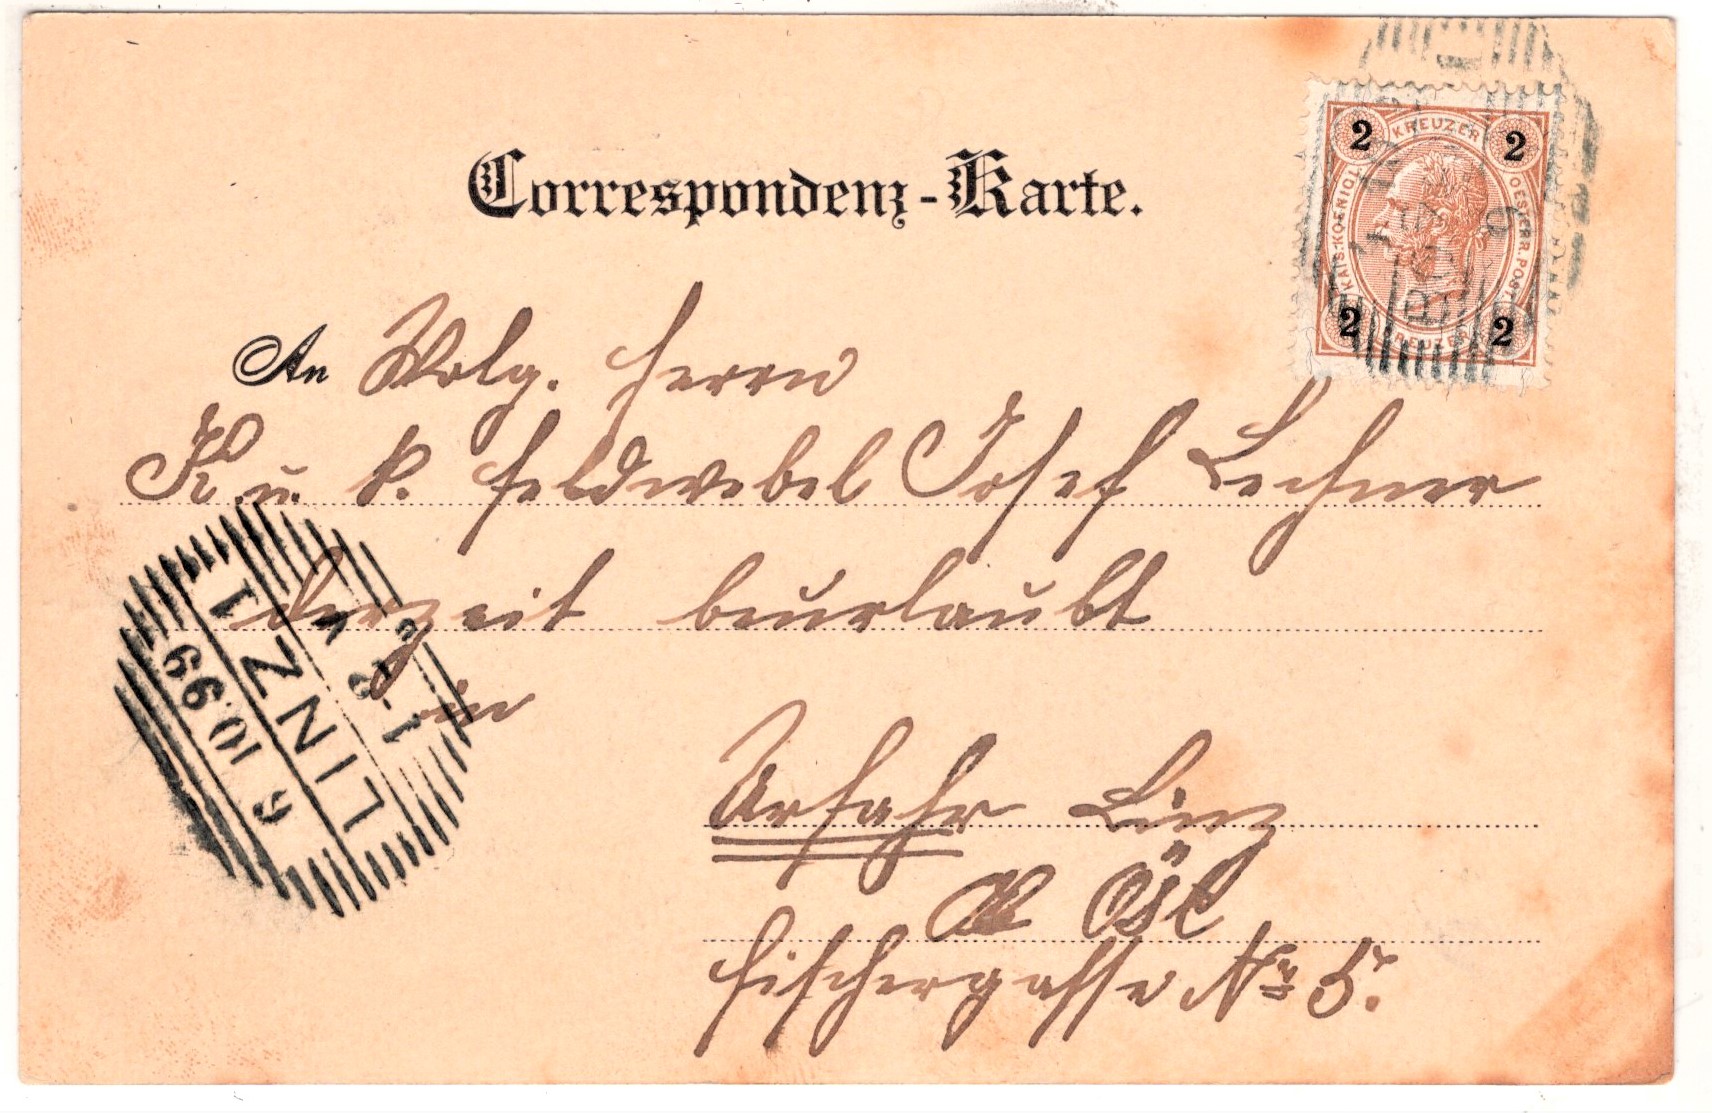 Correspondenz-Karte.
2 KREUZER 2
KAIS. KOENIGL. OESTERR. POST
2 KREUZER 2
An Wolg. Herrn
K. u. k. Feldwebel Josef Lechner
derzeit beurlaubt
in
Urfahr Linz
Öst
Fischergasse No 5.
LINZ 1
6 10.99